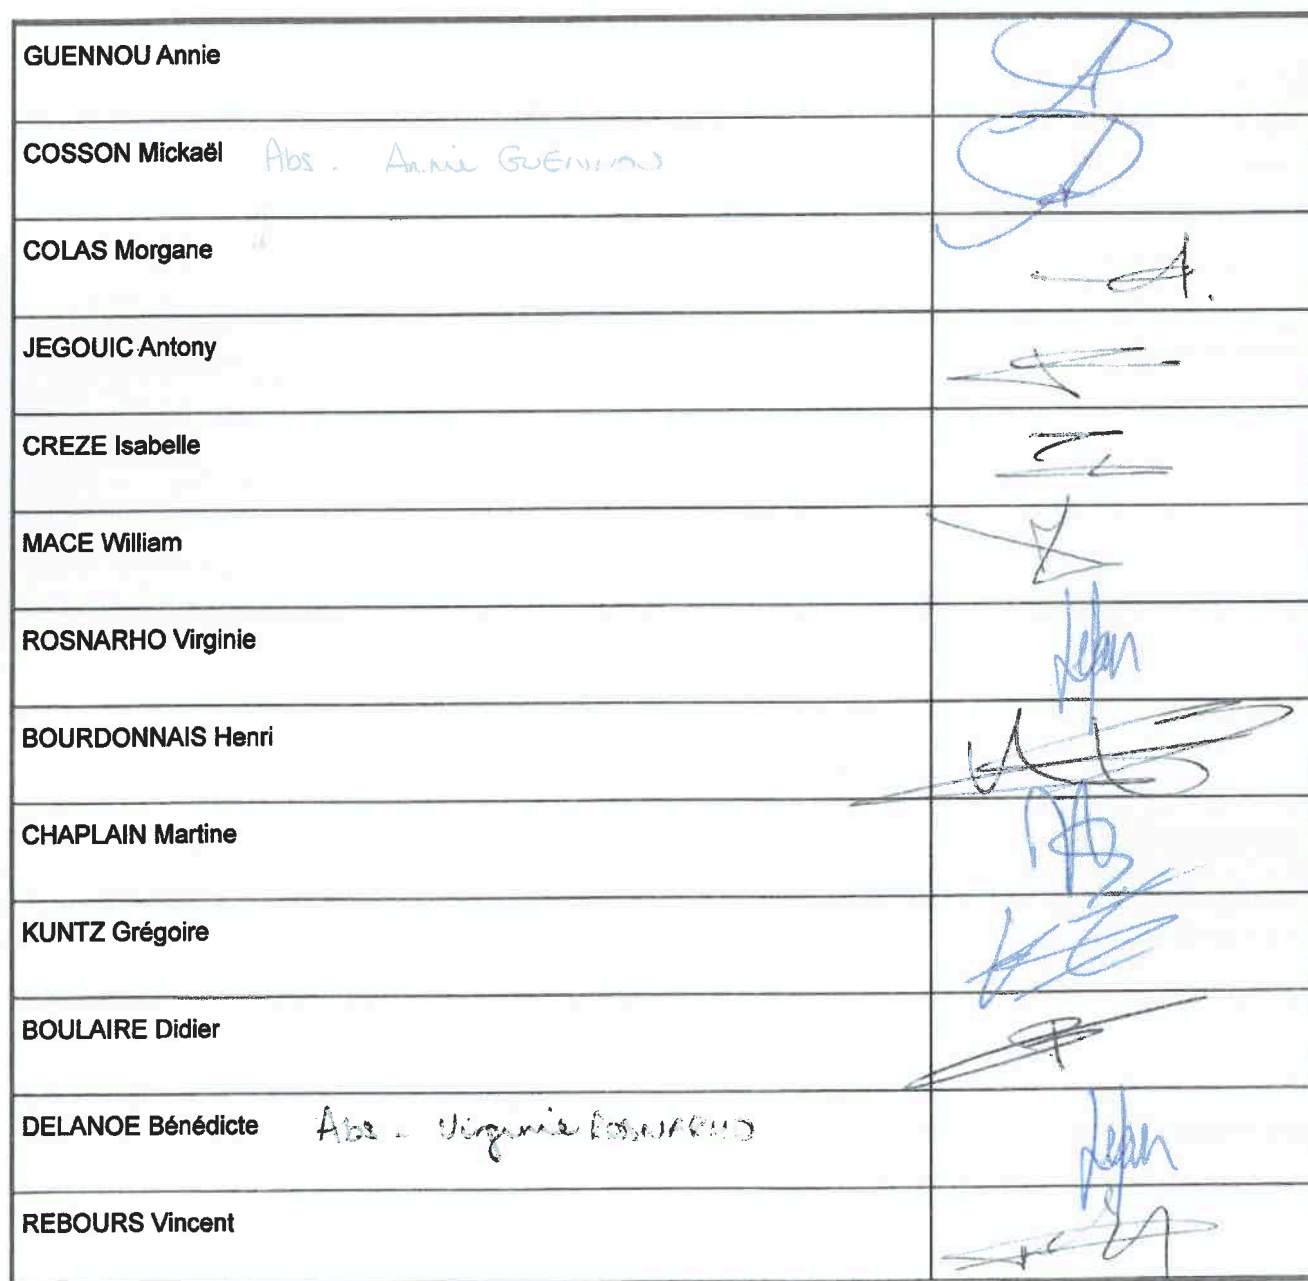 GUENNOU Annie
COSSON Mickaël Abs. Annie GUENNOU
COLAS Morgane
JEGOUIC Antony
CREZE Isabelle
MACE William
ROSNARHO Virginie
BOURDONNAIS Henri
CHAPLAIN Martine
KUNTZ Grégoire
BOULAIRE Didier
DELANOE Bénédicte Abs - Virginie ROSNARHO
REBOURS Vincent